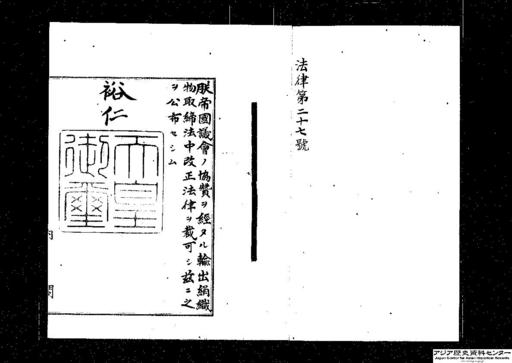 法律第二十七號
朕帝國議會ノ協贊ヲ經タル輸出絹織
物取締法中改正法律ヲ裁可シ茲ニ之
ヲ公布セシム
裕仁
天皇
御璽
アジア歴史資料センター
Japan Center for Asian Historical Records